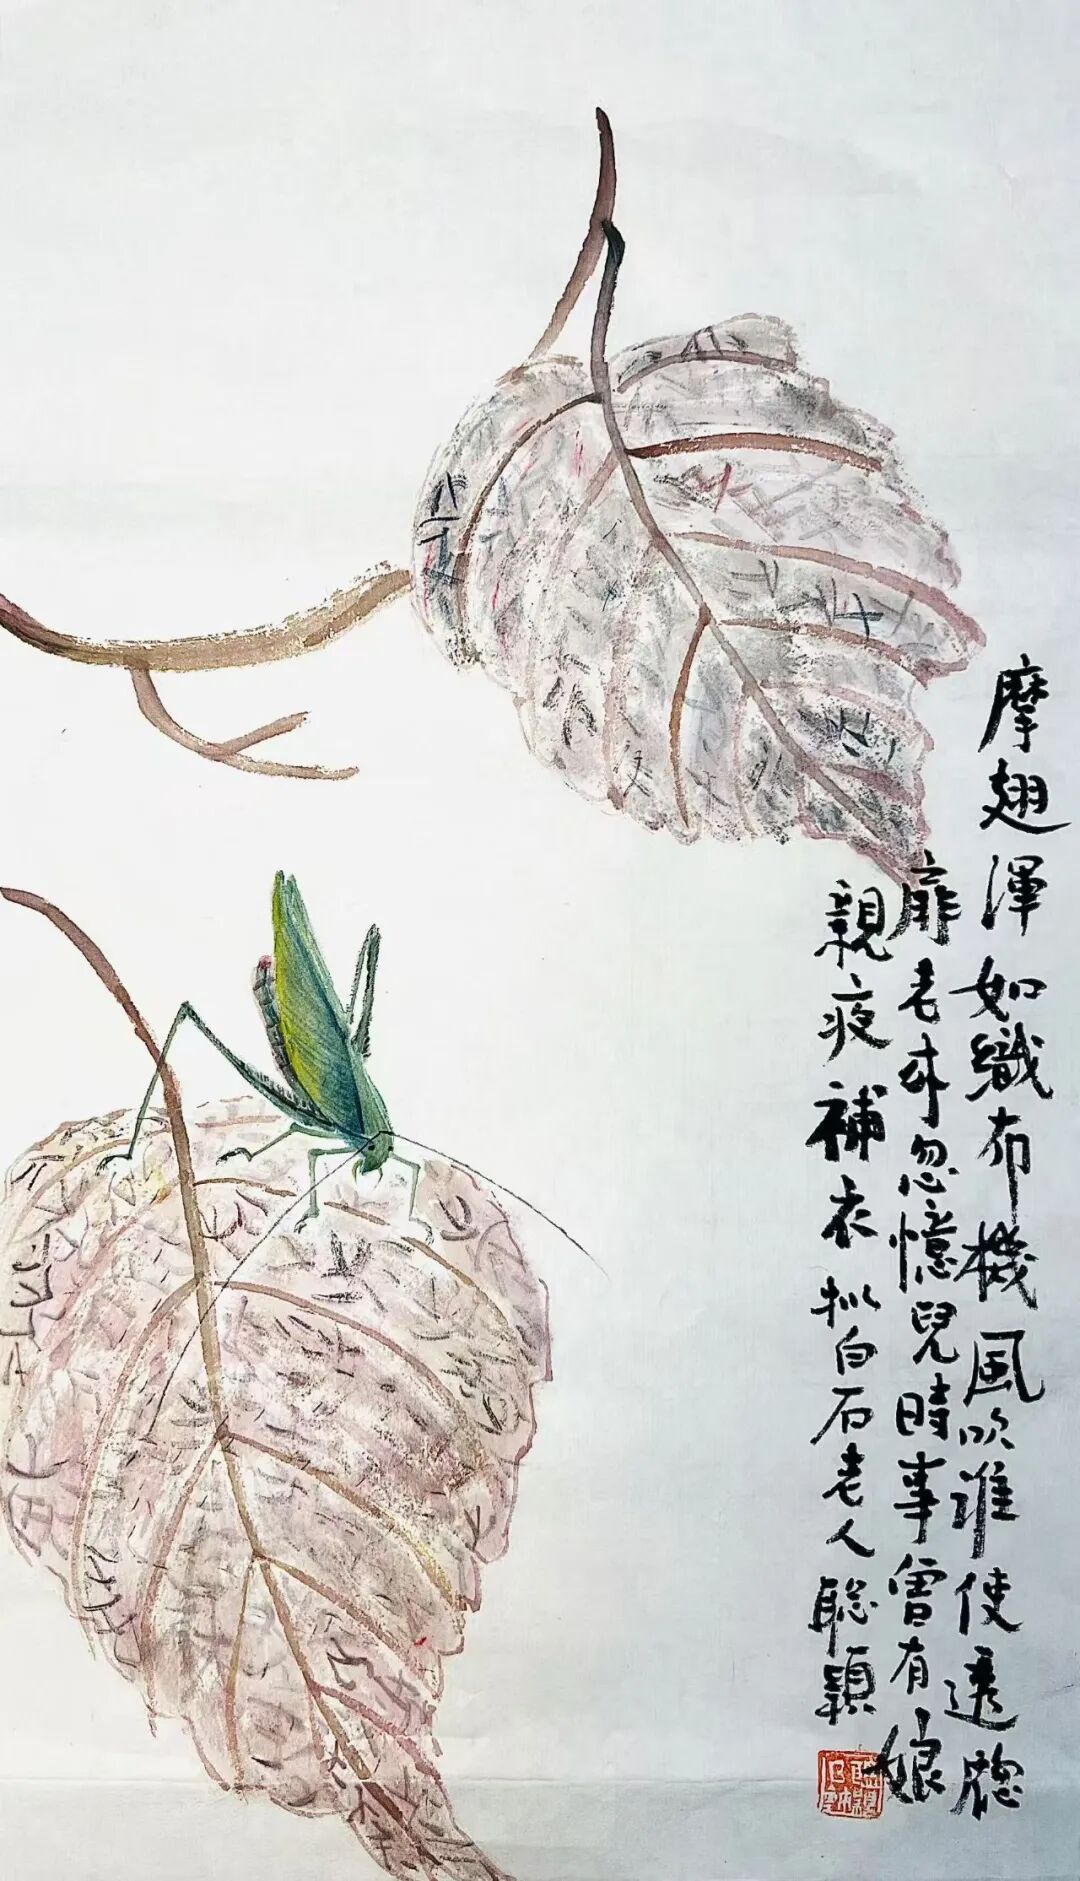 摩翅渾如織布機風吹誰使透窗
扉老來忽憶兒時事曾有娘
親夜補衣 拟白石老人 聪穎